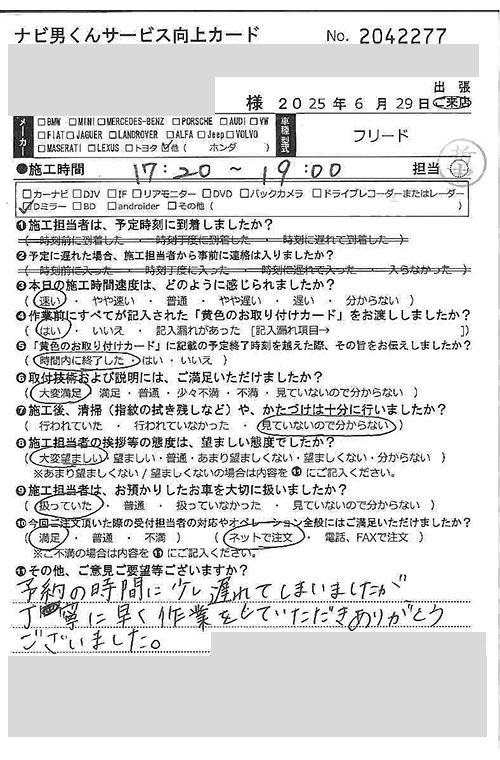 ナビ男くんサービス向上カード No. 2042277
様 2025年6月29日 出張 ・ご来店
メーカー □BMW □MINI □MERCEDES-BENZ □PORSCHE □AUDI □VW
□FIAT □JAGUER □LANDROVER □ALFA □Jeep □VOLVO
□MASERATI □LEXUS □トヨタ ☑他 ( ホンダ )
車種型式 フリード
●施工時間 17:20 ~ 19:00 担当
□カーナビ □DJV □IF □リアモニター □DVD □バックカメラ □ドライブレコーダーまたはレーダー
☑Dミラー □BD □androider □その他 ( )
❶施工担当者は、予定時刻に到着しましたか?
( 時刻前に到着した ・ 時刻丁度に到着した ・ 時刻に遅れて到着した )
❷予定に遅れた場合、施工担当者から事前に連絡は入りましたか?
( 時刻前に入った ・ 時刻丁度に入った ・ 時刻に遅れて入った ・ 入らなかった )
❸本日の施工時間速度は、どのように感じられましたか?
( 速い ・ やや速い ・ 普通 ・ やや遅い ・ 遅い ・ 分からない )
❹作業前にすべてが記入された「黄色のお取り付けカード」をお渡ししましたか?
( はい ・ いいえ ・ 記入漏れがあった [記入漏れ項目→ ])
❺「黄色のお取り付けカード」に記載の予定終了時刻を越えた際、その旨をお伝えしましたか?
( 時間内に終了した ・ はい ・ いいえ )
❻取付技術および説明には、ご満足いただけましたか?
( 大変満足 ・ 満足 ・ 普通 ・ 少々不満 ・ 不満 ・ 見ていないので分からない )
❼施工後、清掃(指紋の拭き残しなど)や、かたづけは十分に行いましたか?
( 行われていた ・ 行われていなかった ・ 見ていないので分からない )
❽施工担当者の挨拶等の態度は、望ましい態度でしたか?
( 大変望ましい ・ 望ましい ・ 普通 ・ あまり望ましくない ・ 望ましくない ・ 分からない )
※あまり望ましくない / 望ましくないの場合は内容を⓫にご記入ください。
❾施工担当者は、お預かりしたお車を大切に扱いましたか?
( 扱っていた ・ 普通 ・ 扱っていなかった ・ 見ていないので分からない )
❿今回ご注文頂いた際の受付担当者の対応やオペレーション全般にはご満足いただけましたか?
( 満足 ・ 普通 ・ 不満 ) ( ネットで注文 ・ 電話、FAXで注文 )
※ご不満の場合は内容を⓫にご記入ください。
⓫その他、ご意見ご要望等ございますか?
予約の時間に少し遅れてしまいましたが
丁寧に早く作業をしていただきありがとう
ございました。